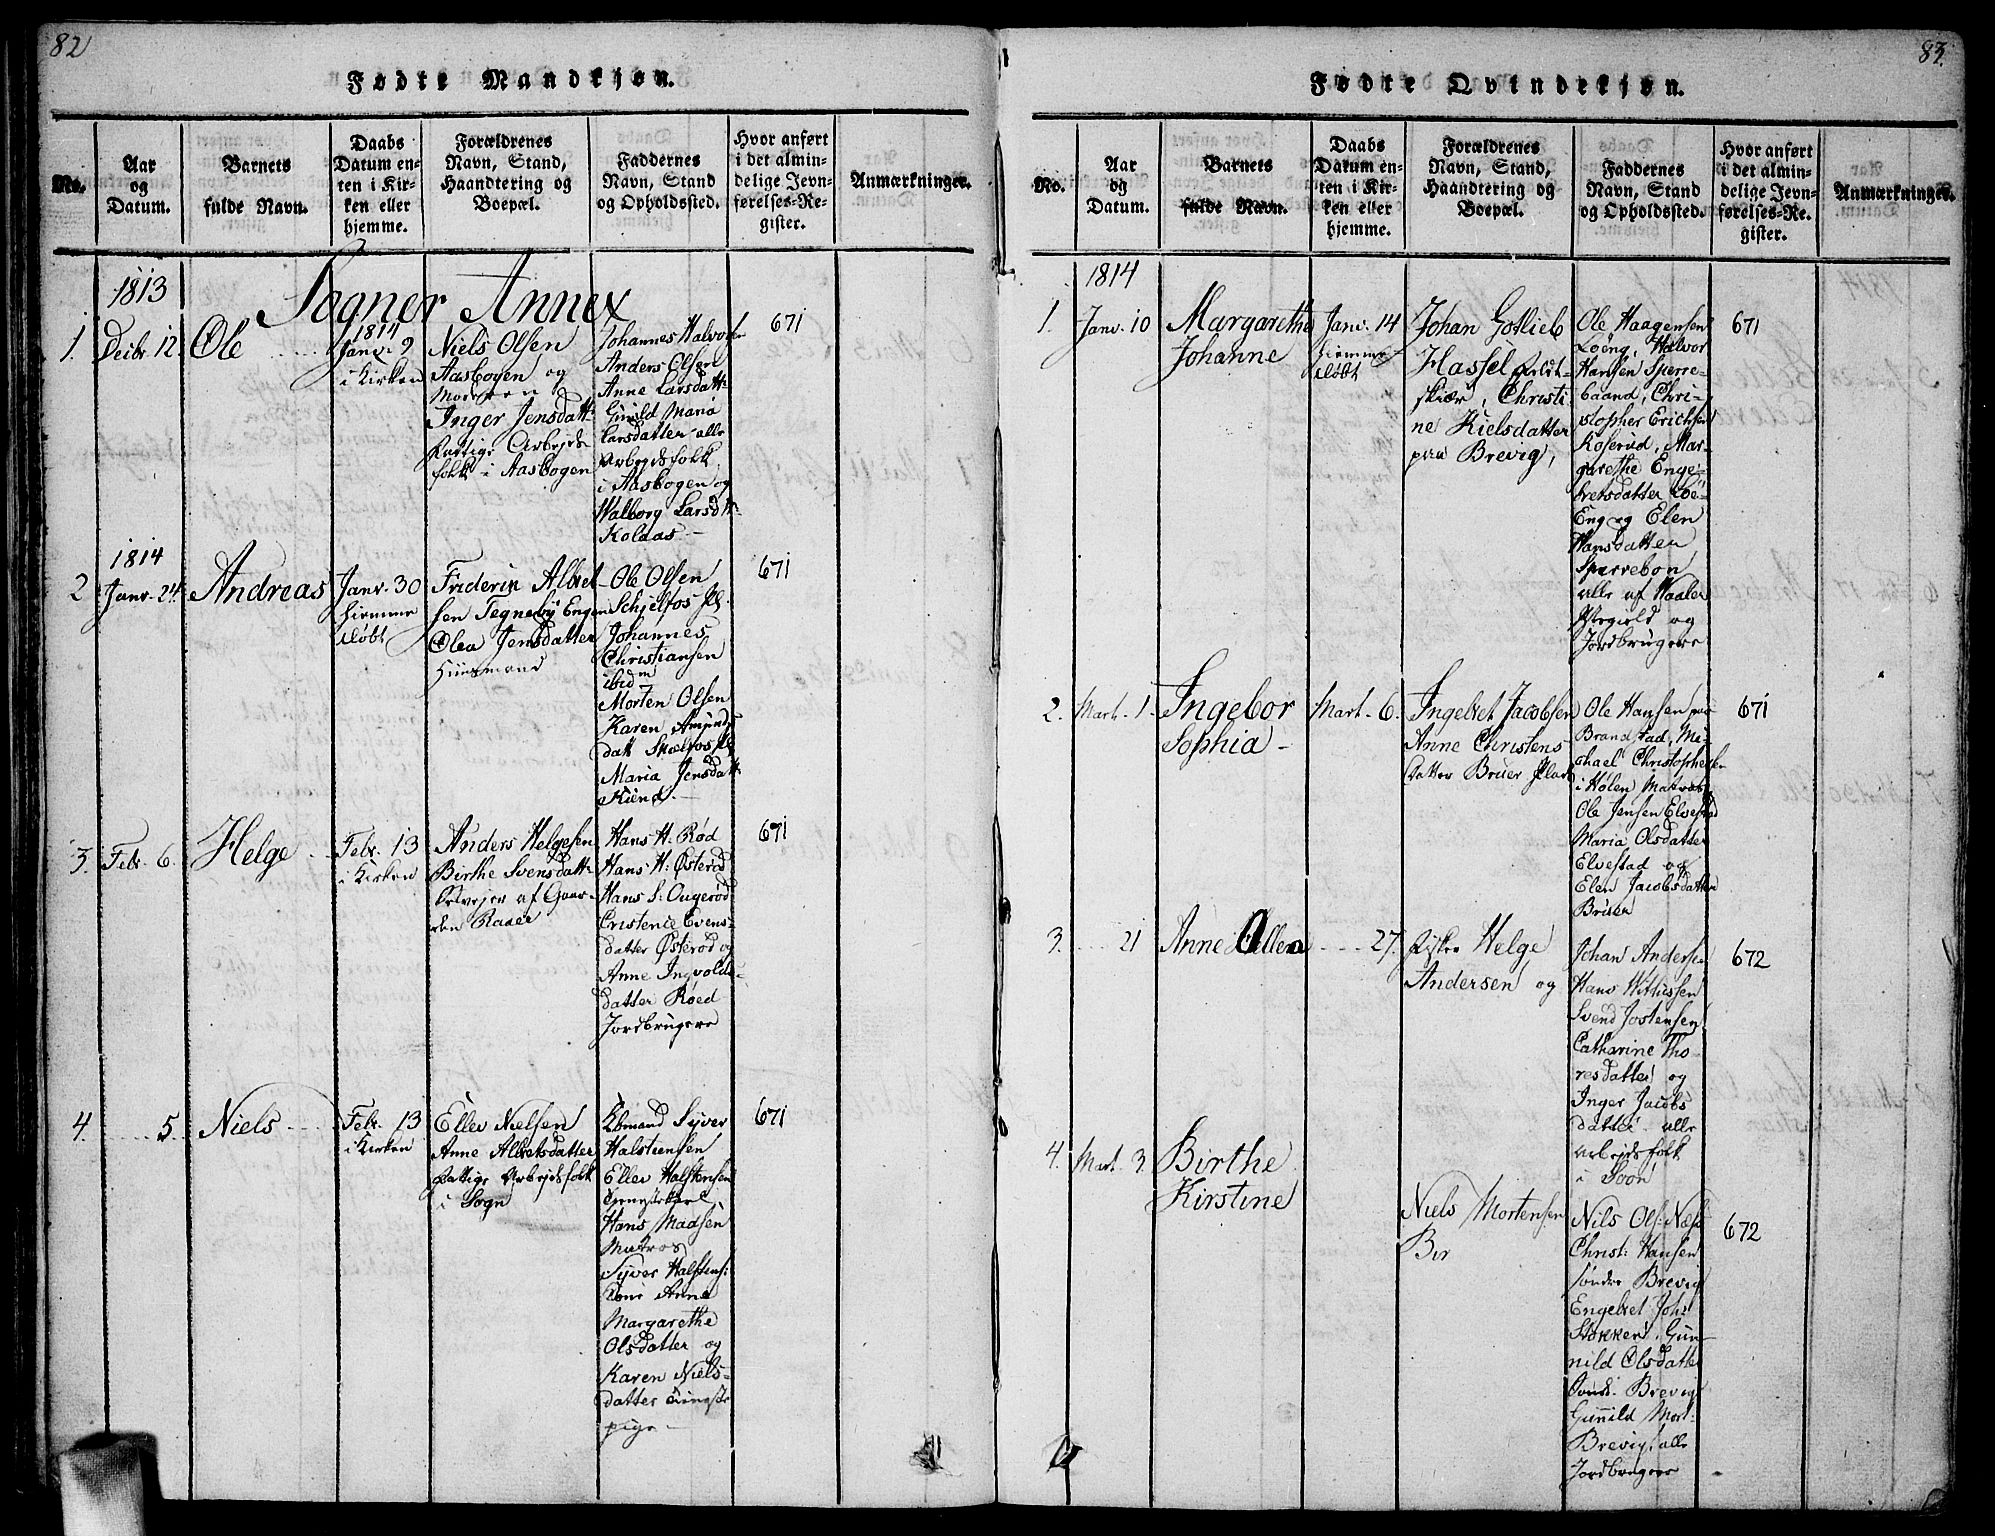 82
Fødte Mandkjøn.
No.
Aar
og
Datum.
Barnets
fulde Navn.
Daabs
Datum en-
ten i Kir-
ken eller
hjemme.
Forældrenes
Navn, Stand,
Haandtering og
Boepæl.
Faddernes
Navn, Stand
og Opholdssted.
Hvor anført
i det almin-
delige Jevn-
førelses-Re-
gister.
Anmærkninger.
Sogner Annex
1813
1.
Decbr. 12.
Ole
1814
Janv. 9
i Kirken
Niels Olsen
Aasbogen og
Moderen
Inger Jensdatt.
Fattige Arbejds
folk i Aasbogen
Johannes Halvorsen
Anders Olsen
Anne Larsdatt.
Gunild Maria
Larsdatter alle
Arbejdsfolk
i Aasbogen og
Walborg Larsd.
Kolaas
671
1814
2
Janv. 24.
Andreas
Janv. 30
hiemme
døbt
Friderik Albret-
sen Tegneby Engen
Olea Jensdatter
Huusmand
Ole Olsen
Schjelfos Pl.
Johannes
Christiansen
ibidm
Morten Olsen
Karen Amund
datt Skielfos Pl
Maria Jensdatt
671
3.
Febr. 6.
Helge
Febr. 13
i Kirken
Anders Helgesen
Birthe Svensdatt.
Selvejer af Gaar-
den Raaer
Hans H. Rød
Hans H: Østerød
Hans S: Ougerød
Cristence Evens-
datter Østerød og
Anne Ingvolds-
datter Røed
Jordbrugere
671
4.
5.
Niels
Febr. 13
i Kirken
Ellev Nielsen
Anne Albretsdatter
Fattige Arbejdsfolk
i Sogn
Kbmand Syver
Halstensen
Ellev Halstensen
Tienestekarl
Hans Madsen
Matros
Syver Halstens:
Kone Anne
Margarethe
Olsdatter og
Karen Niels-
datter tieneste
pige
671
83.
Fødte Qvindekjøn.
No.
Aar
og
Datum.
Barnets
fulde Navn.
Daabs
Datum en-
ten i Kir-
ken eller
hjemme.
Forældrenes
Navn, Stand,
Haandtering og
Boepæl.
Faddernes
Navn, Stand
og Opholdssted.
Hvor anført
i det almin-
delige Jevn-
førelses-Re-
gister.
Anmærkninger.
1814
1.
Janv. 10
Margarethe
Johanne
Janv. 14
hiemme
døbt
Johan Gotlieb
Hassel Feldt-
skiær, Christi
ne Kielsdatter
paa Brevig,
Ole Haagensen
Løeng, Halvor
Hansen Sperre-
baand, Chri-
stopher Erichsen
Koserud, Mar-
garethe Enge-
bretsdatter Løe-
Eng og Elen
Hansdatter
Sperrebon
alle af Waaler
Præstegield og
Jordbrugere
671
2.
Mart. 1.
Ingebor
Sophia
Mart. 6.
Ingebret Jacobsen
Anne Christens
datter Bruer Plads
Ole Hansen paa
Brandstad, Mi-
chael Christophersen
i Hølen Matros
Ole Jensen Elvestad
Maria Olsdatter
Elvestad og
Elen Jacobsdatter
Bruer
671
3.
21
Anne Ollea
27.
Fisker Helge
Andersen og
Johan Andersen
Hans Mathisen
Svend Jostensen
Catharine Tho-
resdatter og
Inger Jacobs
datter alle
arbejdsfolk
i Soon
672
4.
Mart. 3.
Birthe
Kirstine
Niels Mortensen
Bir
Nils Ols: Næss
Christ: Hansen
søndre Brevig
Engebret Joh:
Stokker. Gun-
nild Olsdatter
sond: Brevig
Gunild Mort:
Brevig, alle
Jordbrugere
672